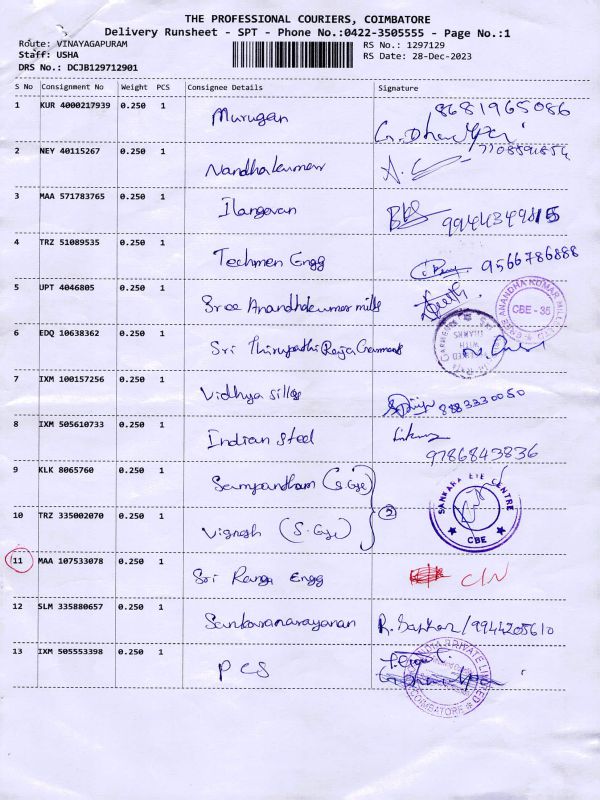 THE PROFESSIONAL COURIERS, COIMBATORE
Delivery Runsheet - SPT - Phone No.:0422-3505555 - Page No.:1
Route: VINAYAGAPURAM RS No.: 1297129
Staff: USHA RS Date: 28-Dec-2023
DRS No.: DCJB129712901
S No Consignment No Weight PCS Consignee Details Signature
1 KUR 4000217939 0.250 1 Murugan 8681965086
2 NEY 40115267 0.250 1 Nandhakumar
3 MAA 571783765 0.250 1 Ilangovan
4 TRZ 51089535 0.250 1 Techmen Engg 9566786888
5 UPT 4046805 0.250 1 Sree Anandhakumar mills ANANDHA KUMAR MILLS CBE - 35
6 EDQ 10638362 0.250 1 Sri Thirupathi Raja Garments WITH THANKS
7 IXM 100157256 0.250 1 Vidhya silks 8883330050
8 IXM 505610733 0.250 1 Indian steel
9786843836
9 KLK 8065760 0.250 1 Sampandham (S. Eye) SANKARA EYE CENTRE
10 TRZ 335002070 0.250 1 Vignesh (S. Eye) 2 CBE
11 MAA 107533078 0.250 1 Sri Ranga Engg C/N
12 SLM 335880657 0.250 1 Sankaranarayanan R. Sankar/9944205610
13 IXM 505553398 0.250 1 PCS PRIVATE LIMITED COIMBATORE